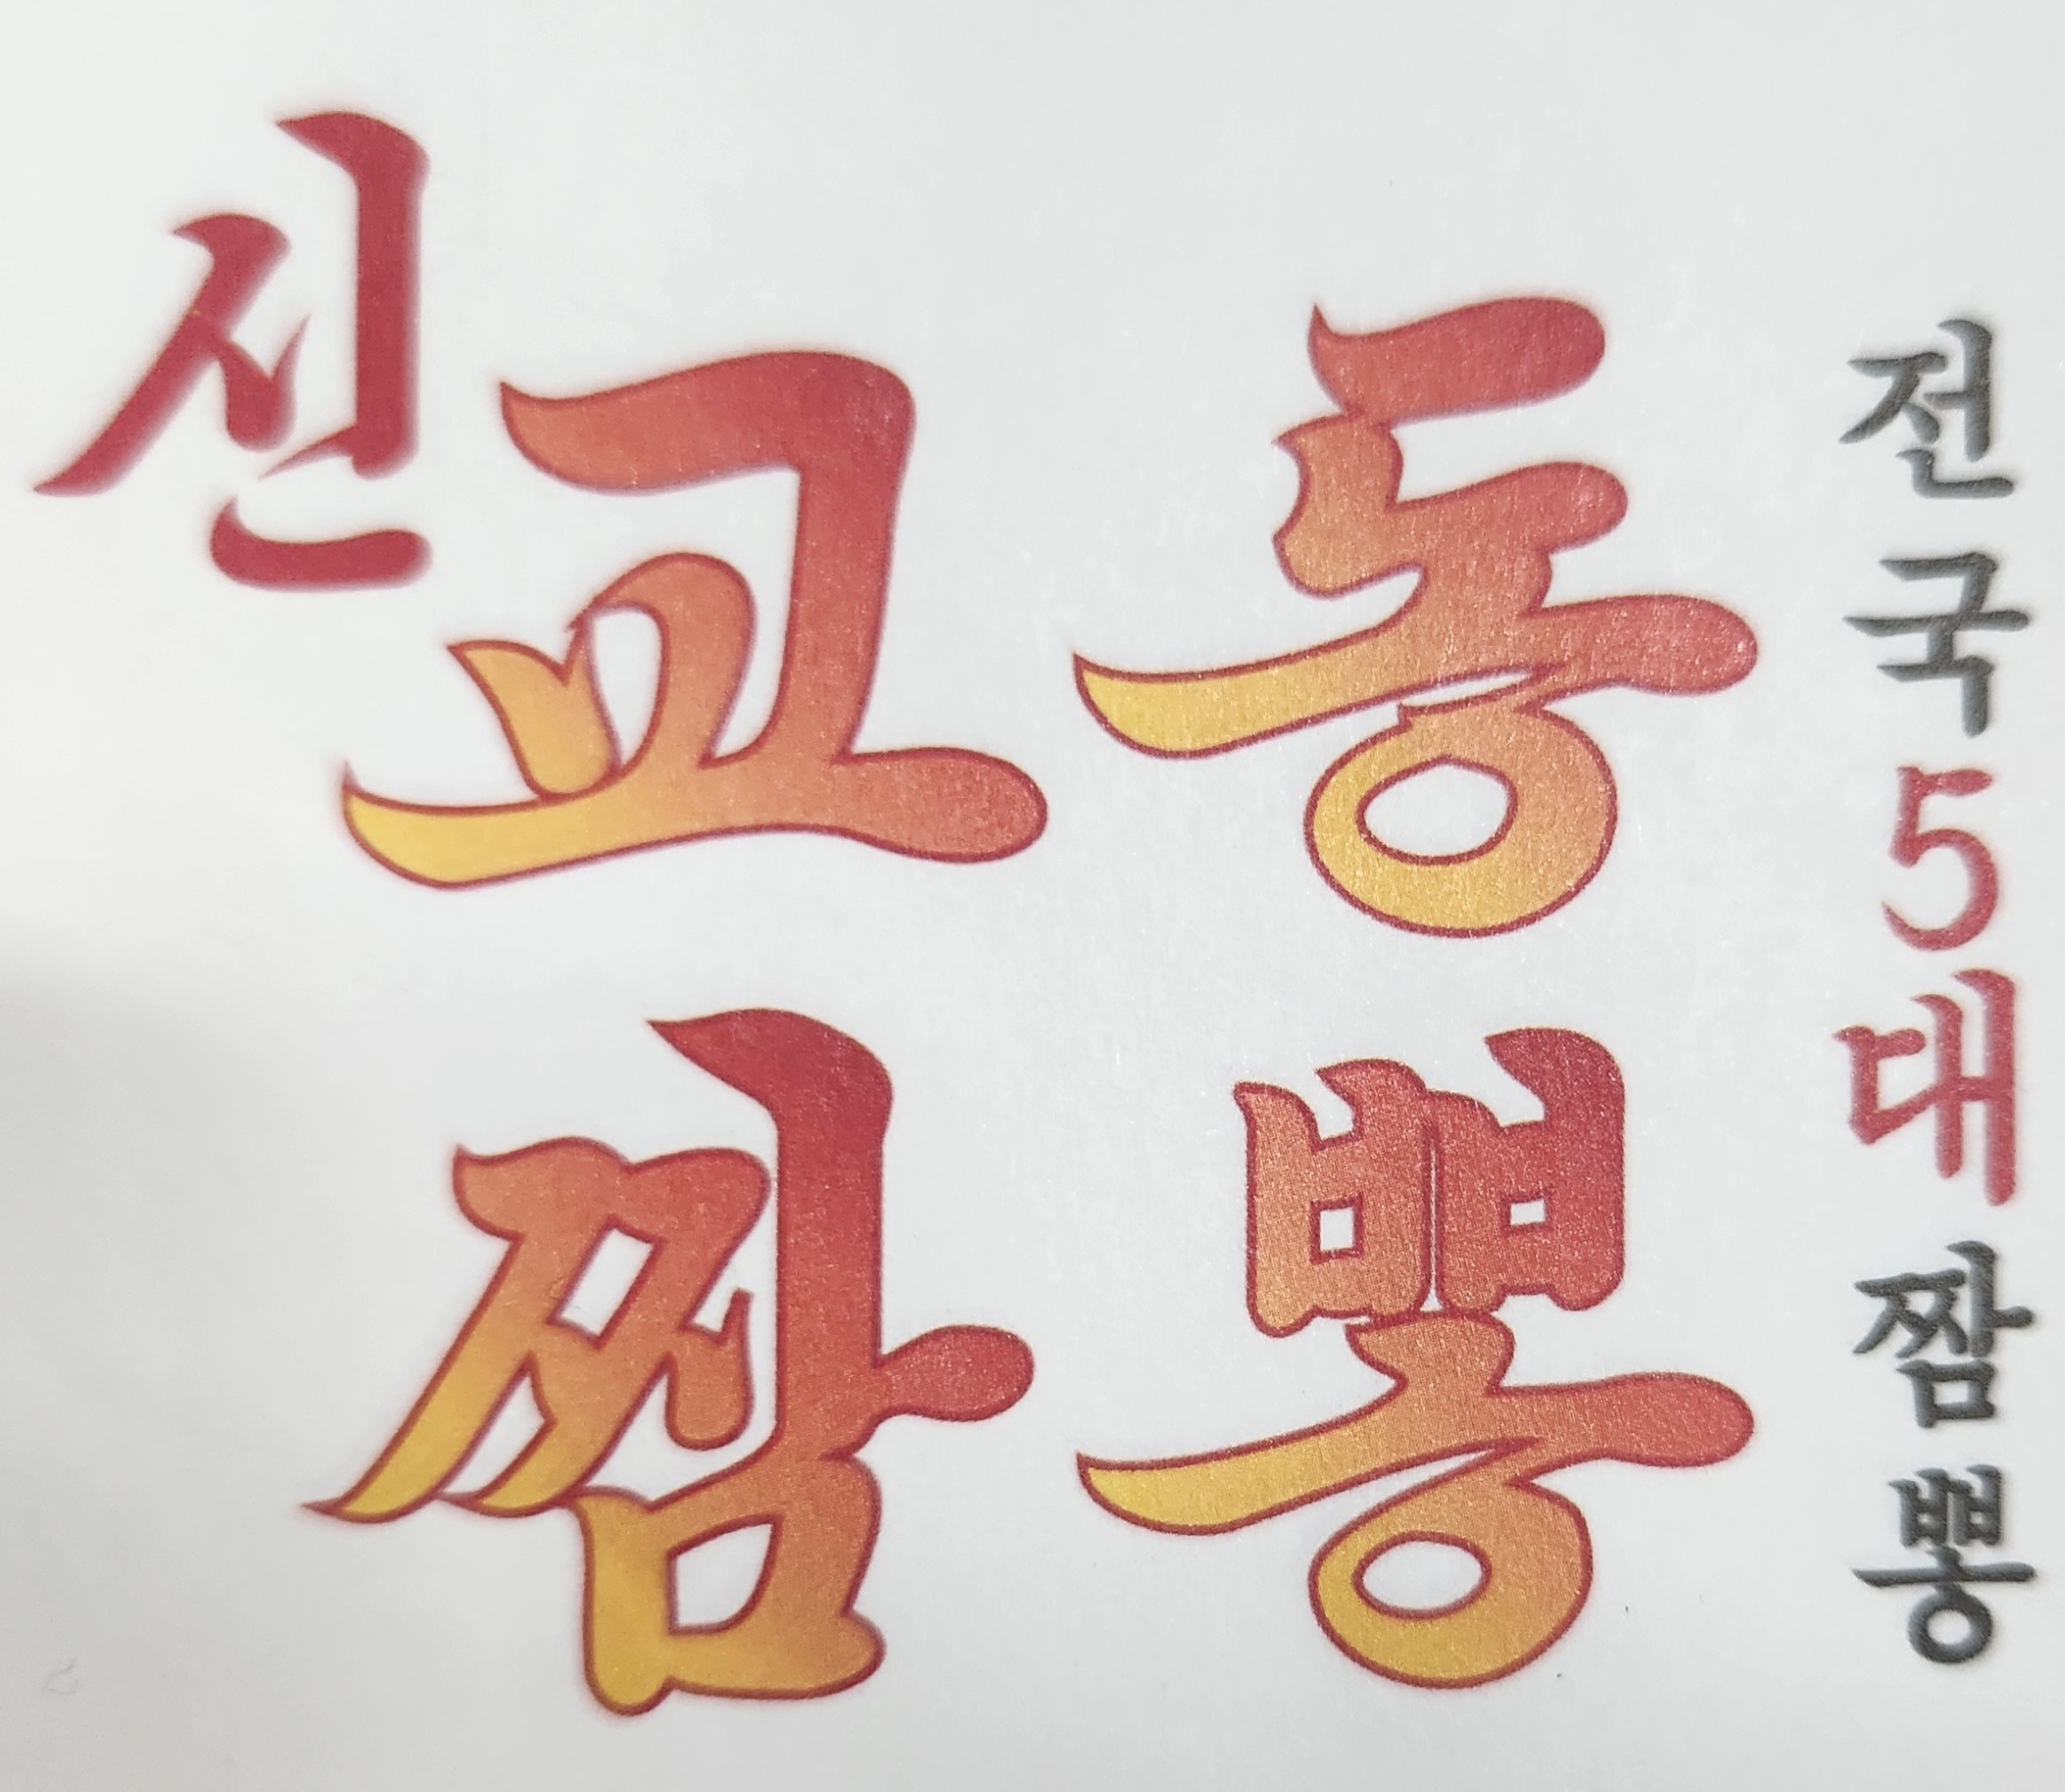 신교동
짬뽕
전국5대짬뽕